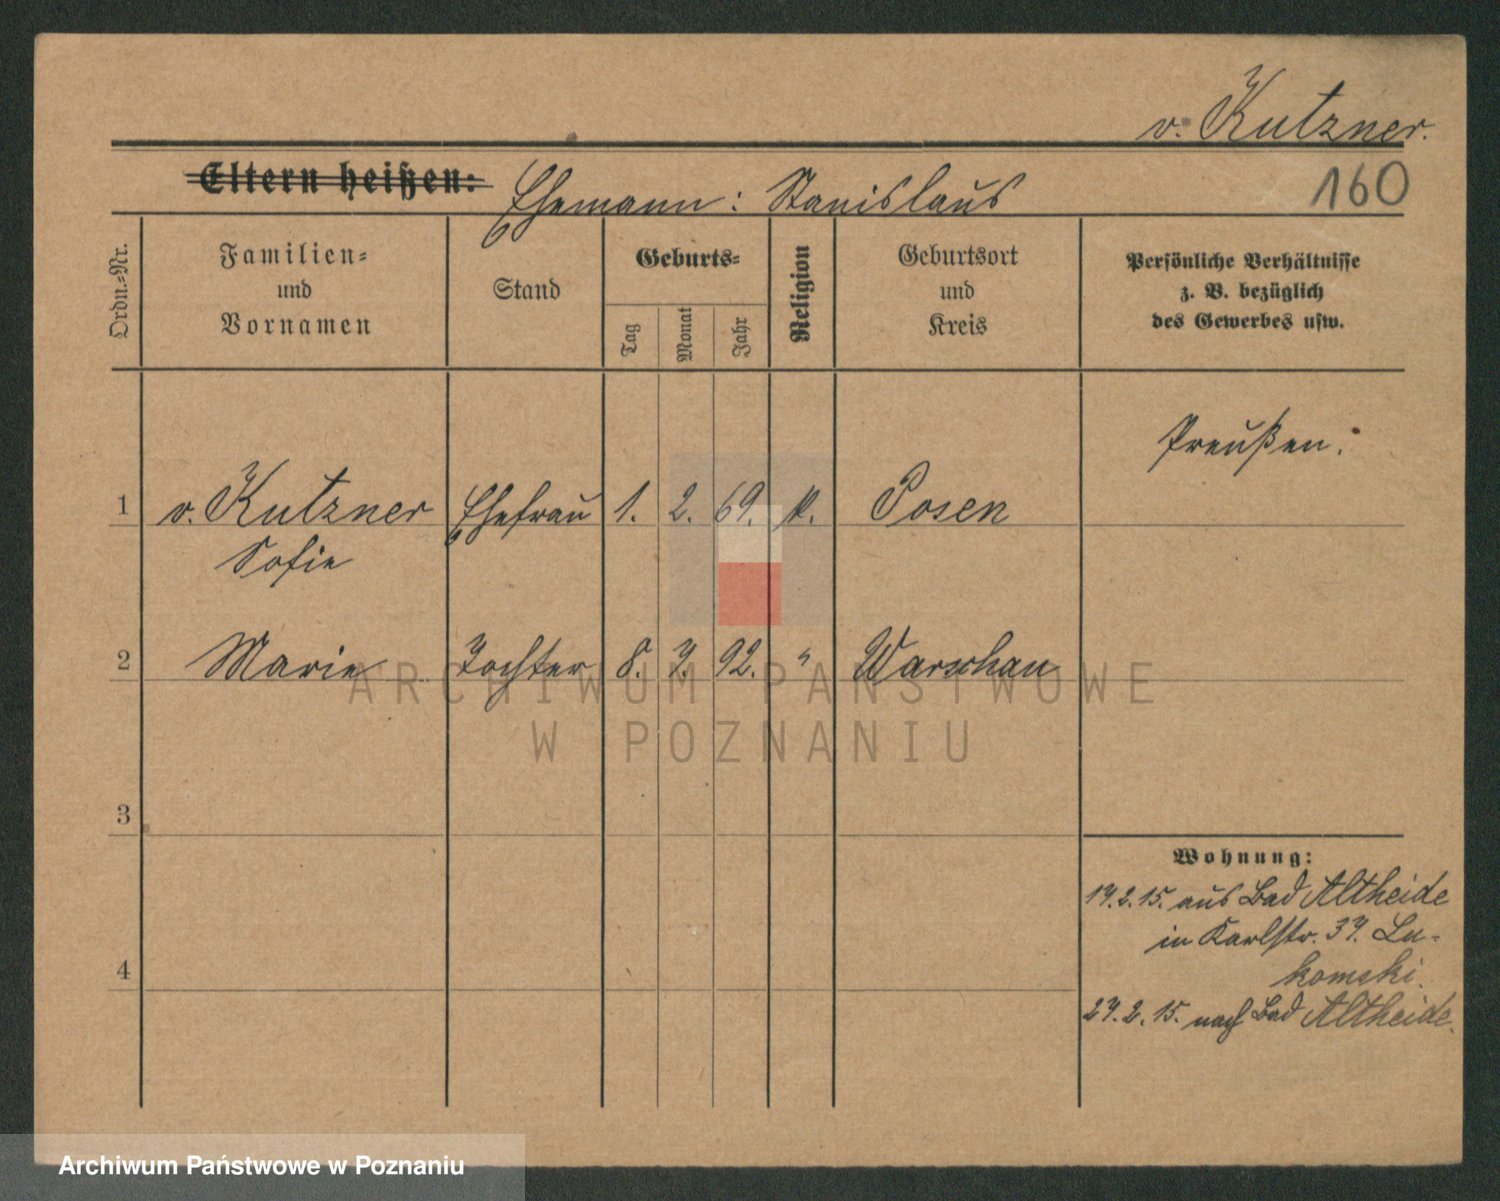 v. Kutzner.
Eltern heißen: Ehemann: Stanislaus
160
Ordn.-Nr.
Familien-
und
Vornamen
Stand
Geburts-
Tag
Monat
Jahr
Religion
Geburtsort
und
Kreis
Persönliche Verhältnisse
z. B. bezüglich
des Gewerbes usw.
Preußen.
1 v. Kutzner Ehefrau 1. 2. 69. k. Posen
Sofie
2 Marie Tochter 8. 7. 92. " Warschau
ARCHIWUM PAŃSTWOWE
W POZNANIU
3
4
Wohnung:
17.2.15. aus Bad Altheide
in Karlstr. 37. Lu-
komski.
27.2.15. nach Bad Altheide.
Archiwum Państwowe w Poznaniu